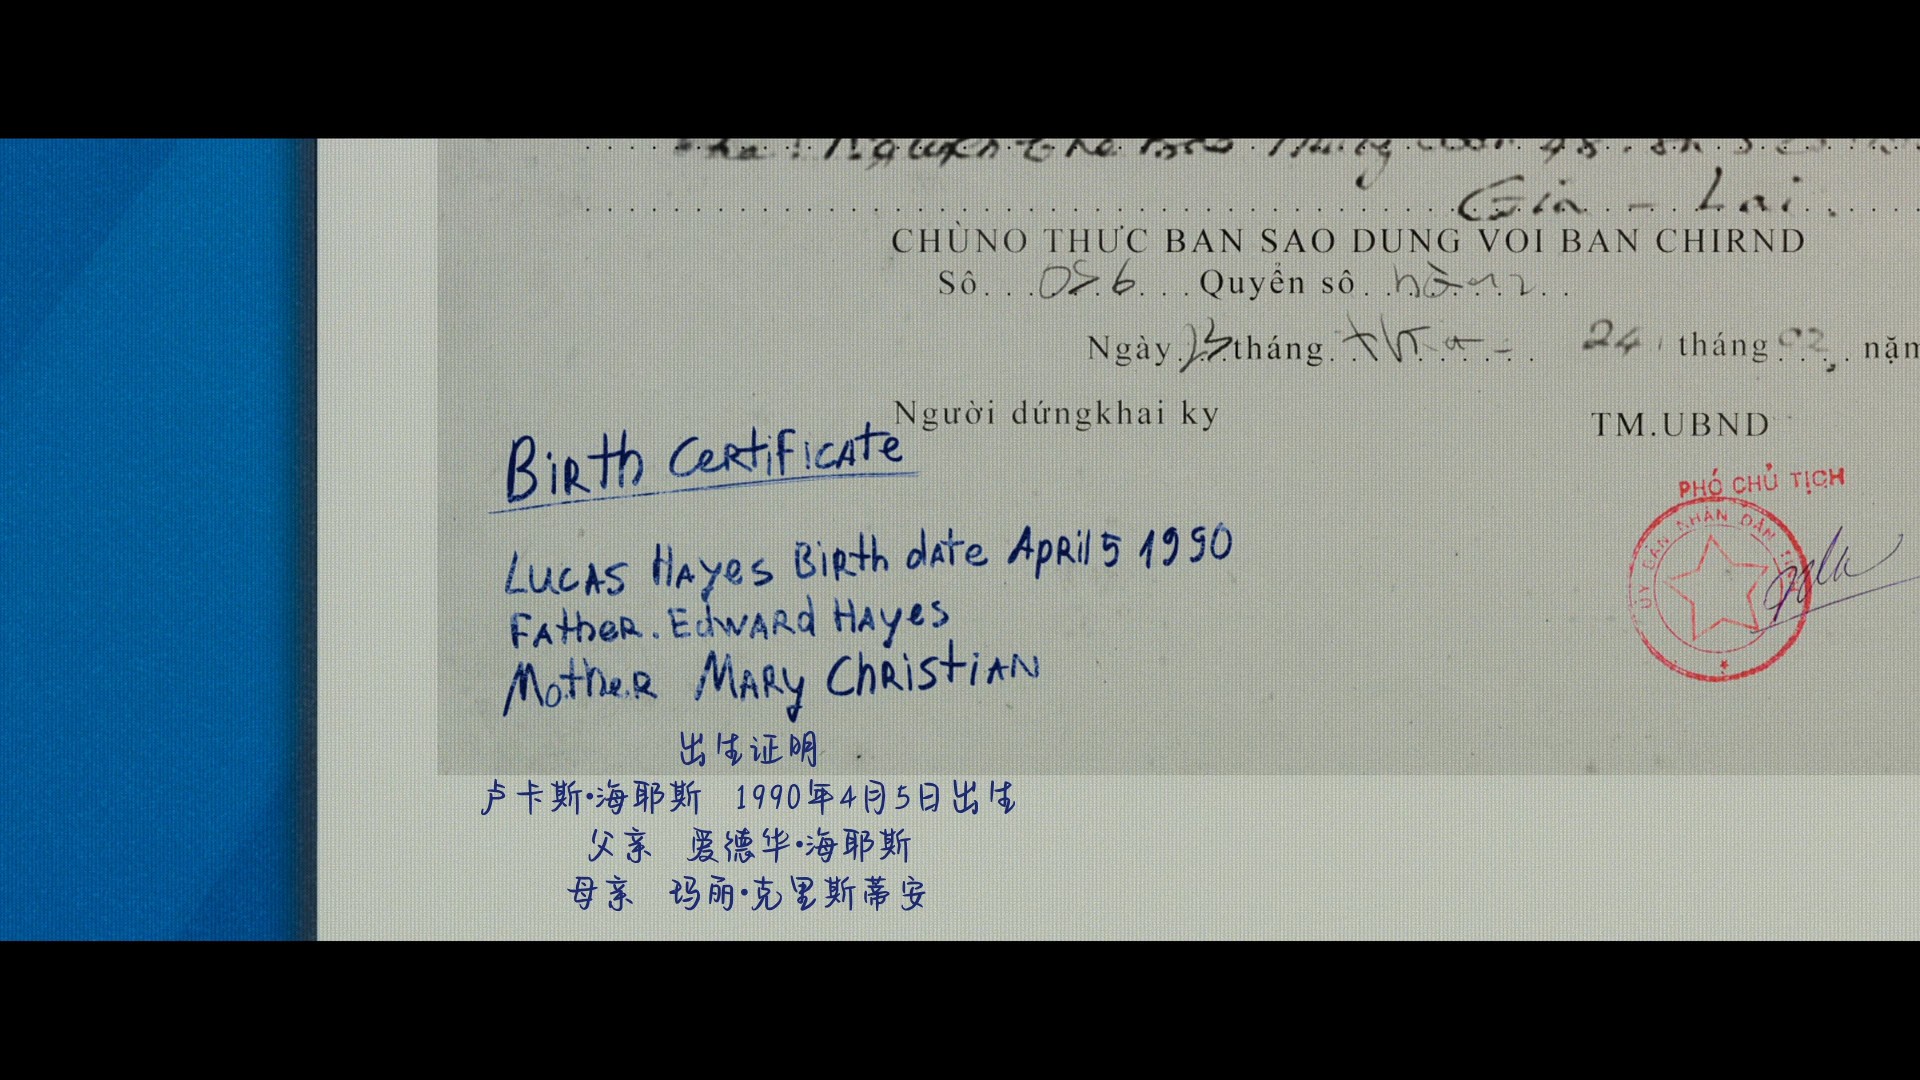 Gia - Lai.
CHÙNO THƯC BAN SAO DUNG VOI BAN CHIRND
Sô...056...Quyển sô
Ngày 23 tháng
24 tháng 02, nặm
Người dứngkhai ky
TM.UBND
PHÓ CHỦ TỊCH
Birth Certificate
Lucas Hayes Birth date April 5 1990
Father. Edward Hayes
Mother Mary Christian
出生证明
卢卡斯·海耶斯 1990年4月5日出生
父亲 爱德华·海耶斯
母亲 玛丽·克里斯蒂安